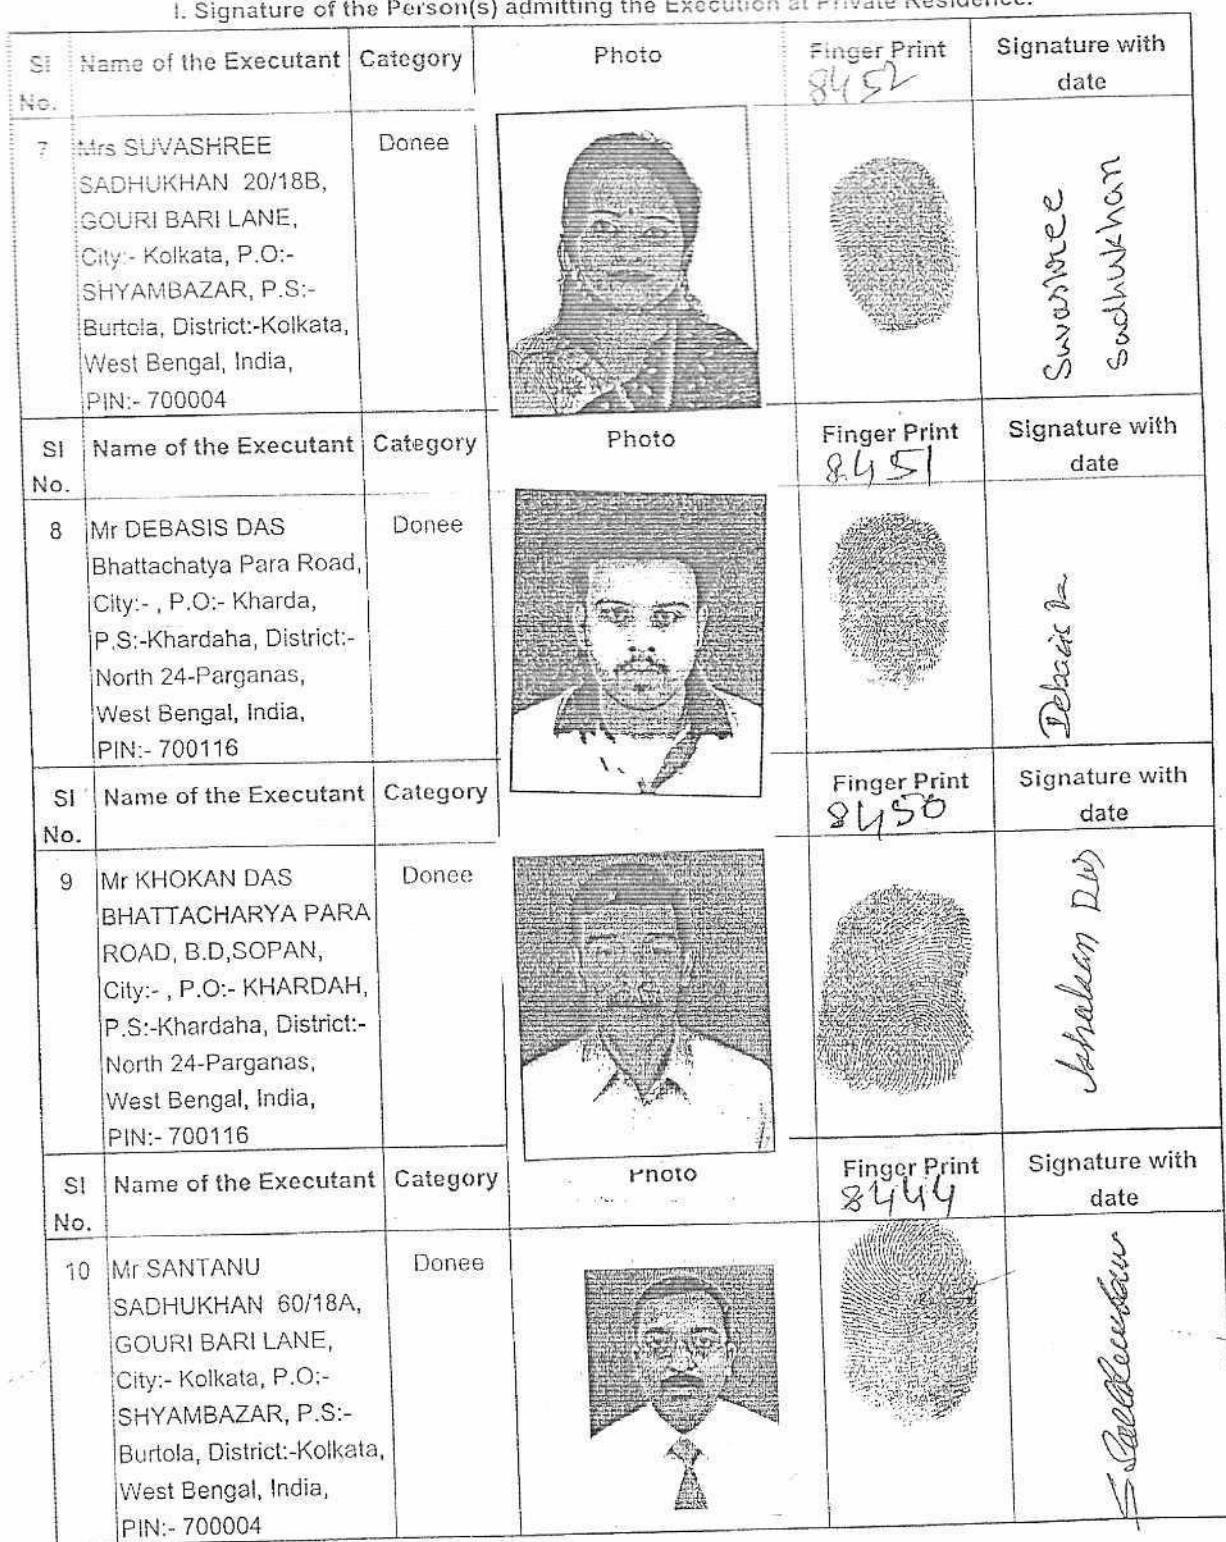 I. Signature of the Person(s) admitting the Execution at Private Residence.
Sl No. Name of the Executant Category Photo Finger Print Signature with date
8452
7 Mrs SUVASHREE Donee
SADHUKHAN 20/18B,
GOURI BARI LANE,
City:- Kolkata, P.O:-
SHYAMBAZAR, P.S:-
Burtola, District:-Kolkata,
West Bengal, India,
PIN:- 700004
Suvashree
Sadhukhan
Sl No. Name of the Executant Category Photo Finger Print Signature with date
8451
8 Mr DEBASIS DAS Donee
Bhattachatya Para Road,
City:- , P.O:- Kharda,
P.S:-Khardaha, District:-
North 24-Parganas,
West Bengal, India,
PIN:- 700116
Debasis
Sl No. Name of the Executant Category Finger Print Signature with date
8450
9 Mr KHOKAN DAS Donee
BHATTACHARYA PARA
ROAD, B.D,SOPAN,
City:- , P.O:- KHARDAH,
P.S:-Khardaha, District:-
North 24-Parganas,
West Bengal, India,
PIN:- 700116
Das
Sl No. Name of the Executant Category Photo Finger Print Signature with date
8444
10 Mr SANTANU Donee
SADHUKHAN 60/18A,
GOURI BARI LANE,
City:- Kolkata, P.O:-
SHYAMBAZAR, P.S:-
Burtola, District:-Kolkata,
West Bengal, India,
PIN:- 700004